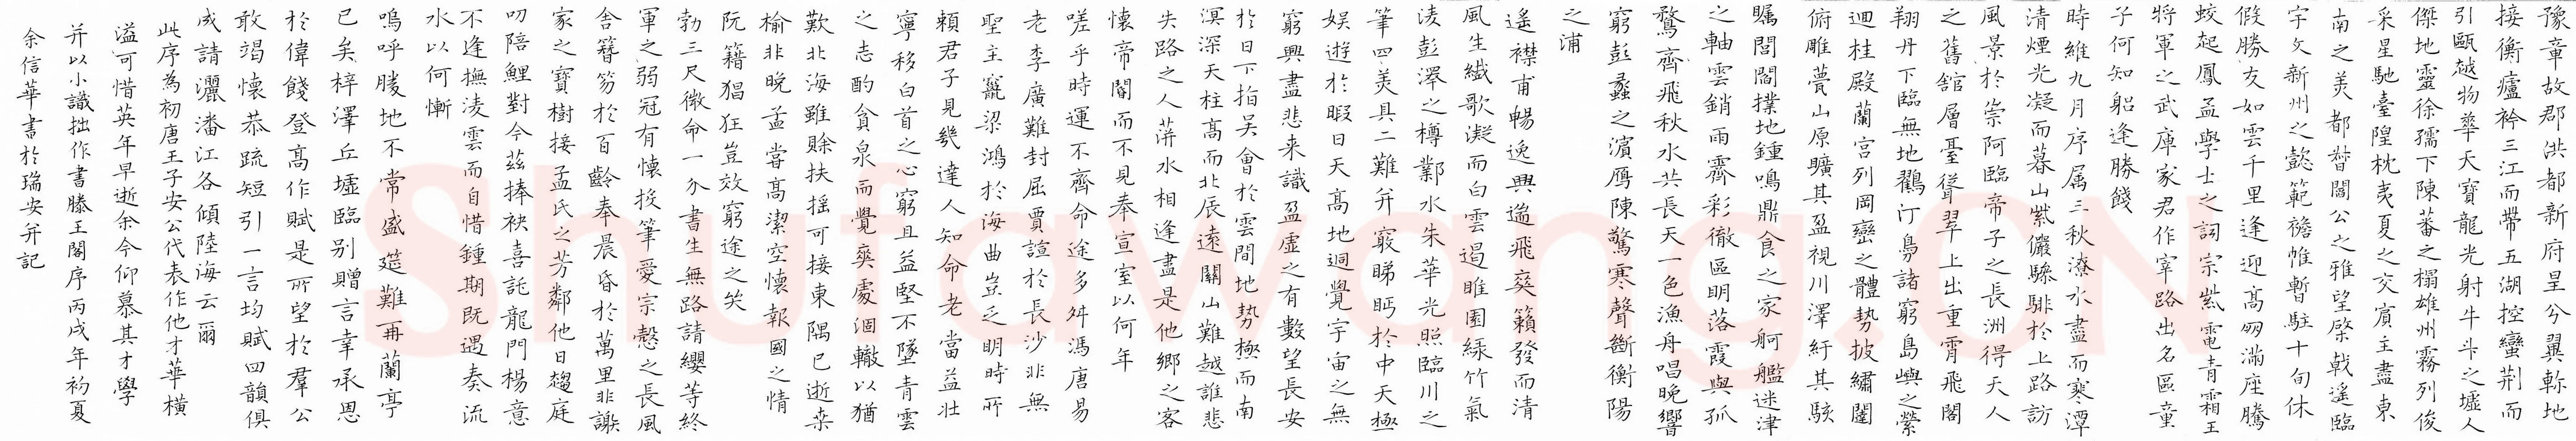 豫章故郡洪都新府星分翼軫地
接衡廬衿三江而帶五湖控蠻荆而
引甌越物華天寶龍光射牛斗之墟人
傑地靈徐孺下陳蕃之榻雄州霧列俊
采星馳臺隍枕夷夏之交賓主盡東
南之美都督閻公之雅望棨戟遙臨
宇文新州之懿範襜帷暫駐十旬休
假勝友如雲千里逢迎高朋滿座騰
蛟起鳳孟學士之詞宗紫電青霜王
將軍之武庫家君作宰路出名區童
子何知躬逢勝餞
時維九月序属三秋潦水盡而寒潭
清煙光凝而暮山紫儼驂騑於上路訪
風景於崇阿臨帝子之長洲得天人
之舊舘層臺聳翠上出重霄飛閣
翔丹下臨無地鶴汀鳧諸窮島嶼之縈
迴桂殿蘭宮列岡巒之體势披繡闥
俯雕甍山原曠其盈視川澤紆其駭
矚閭閻撲地鍾鳴鼎食之家舸艦迷津
之軸雲銷雨霽彩徹區明落霞與孤
鶩齊飛秋水共長天一色漁舟唱晚響
窮彭蠡之濱鴈陳驚寒聲斷衡陽
之浦
遥襟甫暢逸興遄飛爽籟發而清
風生纖歌凝而白雲遏睢園緑竹氣
淩彭澤之樽鄴水朱華光照臨川之
筆四美具二難并窮睇眄於中天極
娱遊於暇日天高地迥覺宇宙之無
窮興盡悲来識盈虛之有數望長安
於日下指吴會於雲間地势極而南
溟深天柱高而北辰遠關山難越誰悲
失路之人萍水相逢盡是他鄉之客
懷帝閽而不見奉宣室以何年
嗟乎時運不齊命途多舛馮唐易
老李廣難封屈賈誼於長沙非無
聖主竄梁鴻於海曲豈乏明時所
賴君子見幾達人知命老當益壯
寧移白首之心窮且益堅不墜青雲
之志酌貪泉而覺爽處涸轍以猶
歎北海雖賒扶摇可接東隅已逝桒
榆非晚孟嘗高潔空懷報國之情
阮籍猖狂豈效窮途之笑
勃三尺微命一介書生無路請纓等終
軍之弱冠有懷投筆愛宗慤之長風
舍簪笏於百齡奉晨昏於萬里非謝
家之寶樹接孟氏之芳鄰他日趨庭
叨陪鯉對今茲捧袂喜託龍門楊意
不逢撫淩雲而自惜鍾期既遇奏流
水以何慚
嗚呼勝地不常盛筵難再蘭亭
已矣梓澤丘墟臨别贈言幸承恩
於偉餞登高作賦是所望於羣公
敢竭懷恭疏短引一言均賦四韻俱
成請灑潘江各傾陸海云爾
此序為初唐王子安公代表作他才華橫
溢可惜英年早逝余今仰慕其才學
并以小識拙作書滕王閣序丙戌年初夏
余信華書於瑞安并記
Shufawang.CN